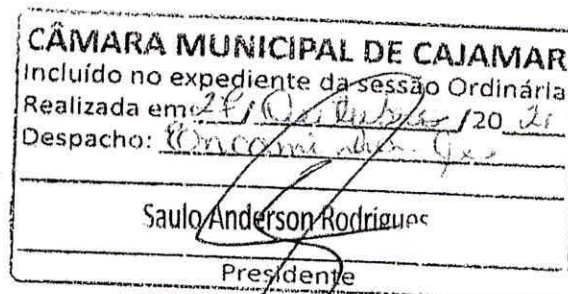 CÂMARA MUNICIPAL DE CAJAMAR
Incluído no expediente da sessão Ordinária
Realizada em / Outubro /20 21
Despacho:
Saulo Anderson Rodrigues
Presidente